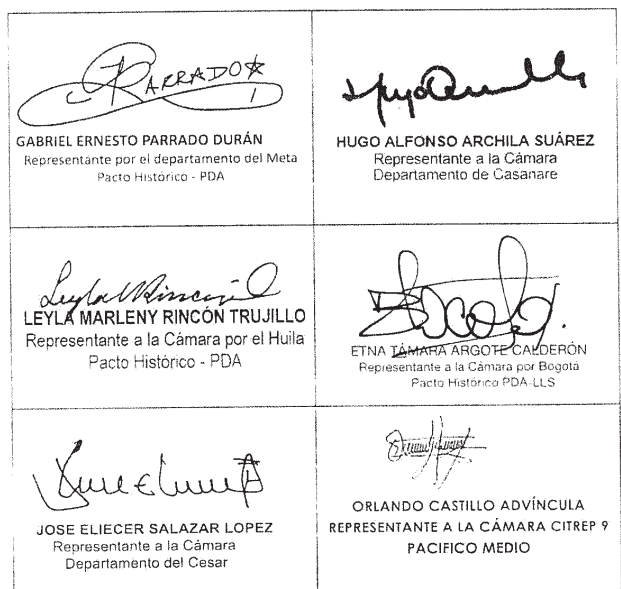 PARRADO
GABRIEL ERNESTO PARRADO DURÁN
Representante por el departamento del Meta
Pacto Histórico - PDA
HUGO ALFONSO ARCHILA SUÁREZ
Representante a la Cámara
Departamento de Casanare
Leyla Rincón
LEYLA MARLENY RINCÓN TRUJILLO
Representante a la Cámara por el Huila
Pacto Histórico - PDA
ETNA TÁMARA ARGOTE CALDERÓN
Representante a la Cámara por Bogotá
Pacto Histórico PDA-LLS
JOSE ELIECER SALAZAR LOPEZ
Representante a la Cámara
Departamento del Cesar
ORLANDO CASTILLO ADVÍNCULA
REPRESENTANTE A LA CÁMARA CITREP 9
PACIFICO MEDIO